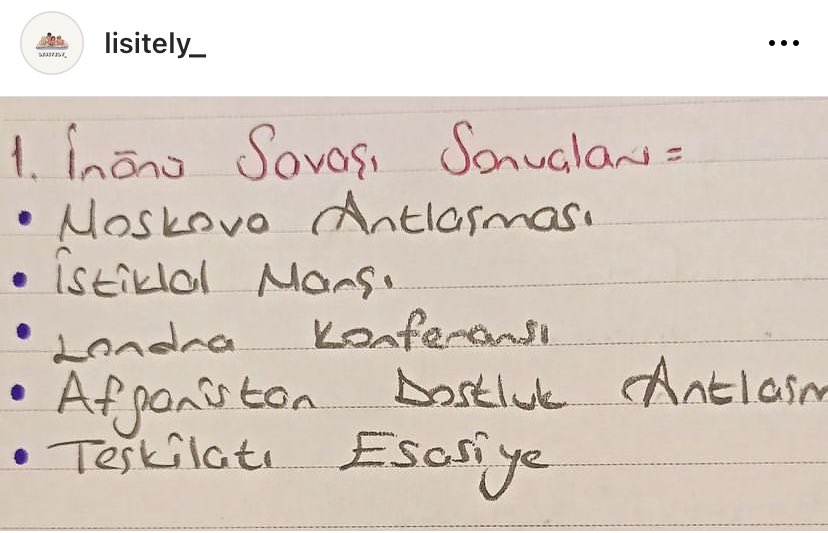 lisitely_
1. İnönü Savaşı Sonuçları =
• Moskova Antlaşması
• İstiklal Marşı
• Londra Konferansı
• Afganistan Dostluk Antlaşm
• Teşkilatı Esasiye